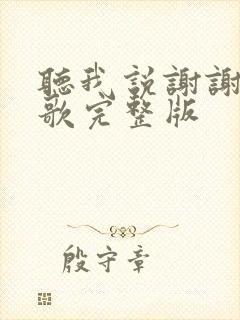 聽我説謝謝
歌完整版
殷守章